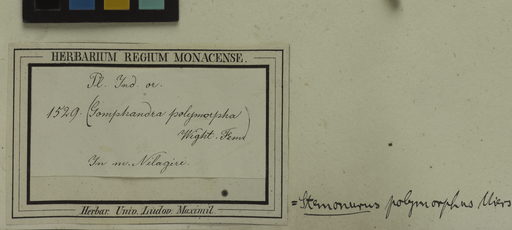 HERBARIUM REGIUM MONACENSE.
Pl. Ind. or.
1529. (Gomphandra polymorpha
Wight. Fem)
In m. Nilagiri.
Herbar. Univ. Ludov. Maximil.
=Stemonurus polymorphus Miers